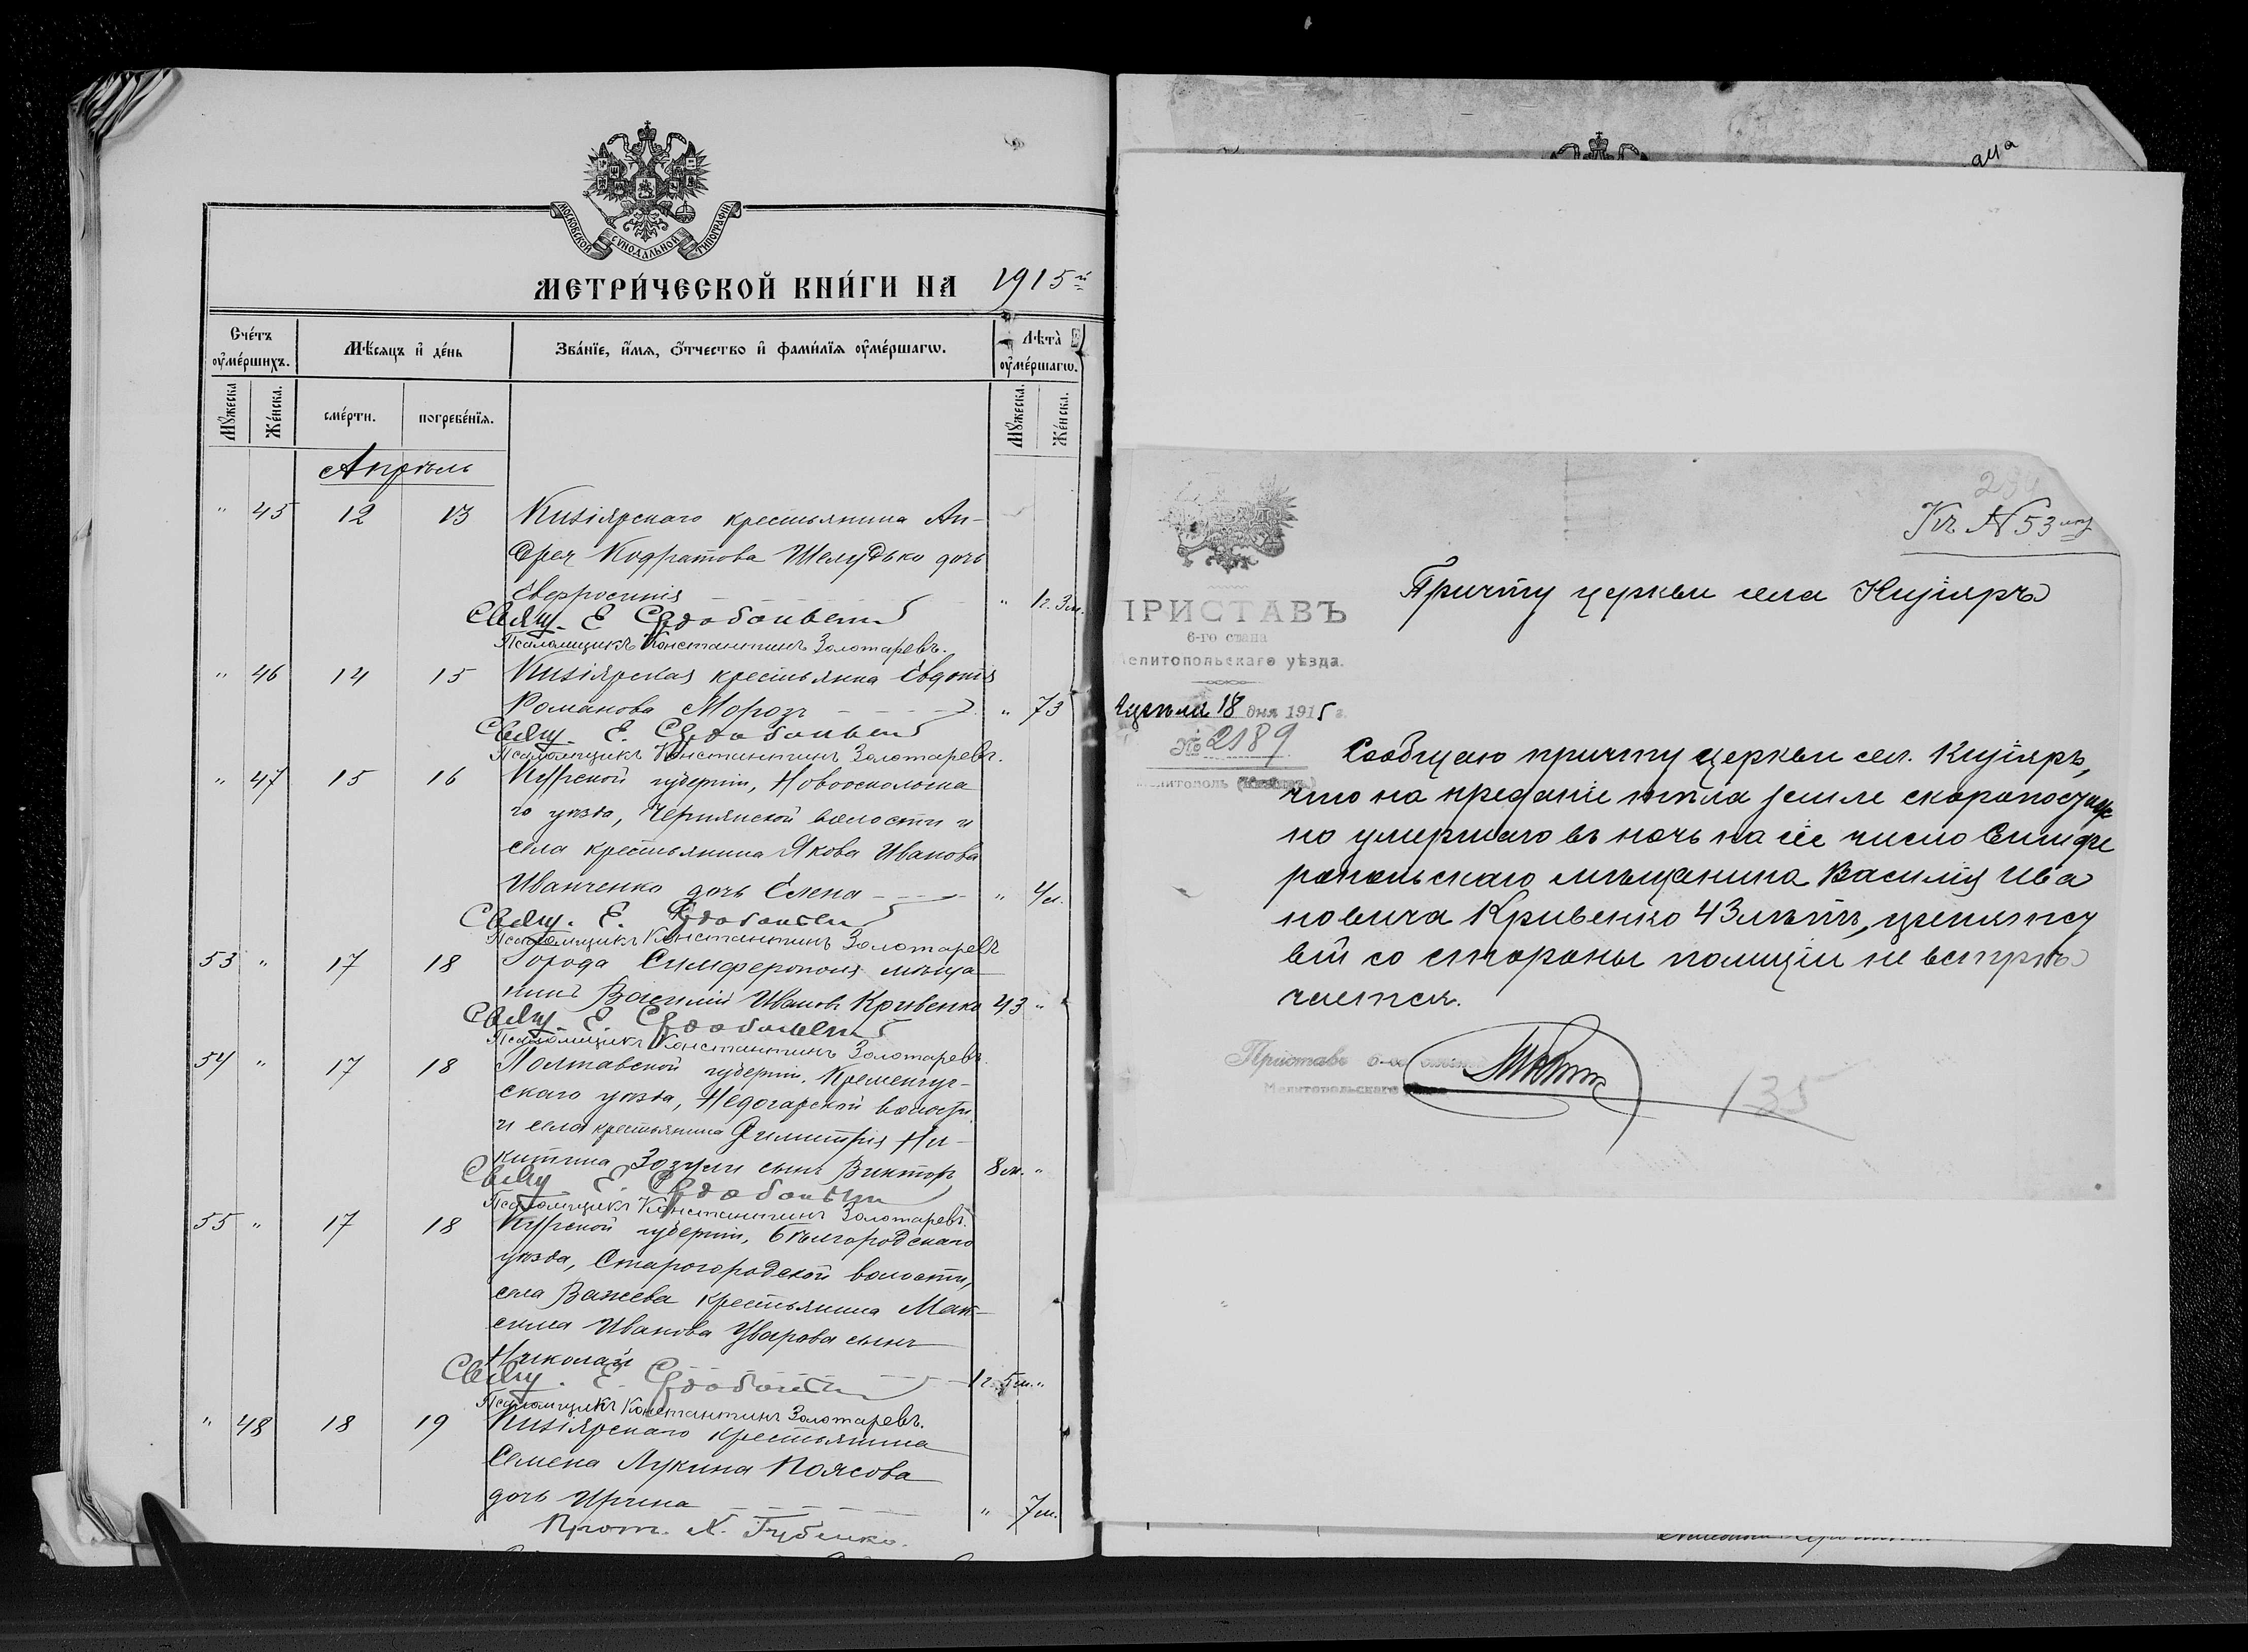 МОСКОВСКОЙ СѴНОДАЛЬНОЙ ТИПОГРАФІИ
МЕТРИ́ЧЕСКОЙ КНИ́ГИ НА 1915й
Сче́тъ ᲂу҆ме́ршихъ.
Мѣ́сяцъ и҆ де́нь
Зва́нїе, и҆́мѧ, ѻ҆́тчество и҆ фами́лїѧ ᲂу҆ме́ршагѡ.
Лѣта̀ ᲂу҆ме́ршагѡ.
Мꙋ́жеска
Же́нска.
сме́рти.
погребе́нїѧ.
Мꙋ́жеска.
Же́нска.
Апрѣль
" 45 12 13 Кизіярскаго крестьянина Ан-
дрея Кодратова Шелудько дочь
Евфросинія " 1г. 3м.
Свящ. Е. Сдобольскій
Псаломщикъ Константинъ Золотаревъ.
" 46 14 15 Кизіярская крестьянка Евдокія
Романова Морозъ " 73
Свящ. Е. Сдобольскій
Псаломщикъ Константинъ Золотаревъ.
" 47 15 16 Курской губерніи, Новооскольска
го уѣзда, Чернянской волости и
села крестьянина Якова Иванова
Иванченко дочь Елена " 4м.
Свящ. Е.
Псаломщикъ Константинъ Золотаревъ
53 " 17 18 Города Симферополя мѣща
нинъ Василій Ивановъ Кривенко 43 "
Свящ. Е.
Псаломщикъ Константинъ Золотаревъ.
54 " 17 18 Полтавской губерніи, Кременчуг-
скаго уѣзда, Недогарской волости
и села крестьянина Димитрія Ни-
китина Зозули сынъ Викторъ 8м. "
Свящ. Е.
Псаломщикъ Константинъ Золотаревъ.
55 " 17 18 Курской губерніи, Бѣлгородскаго
уѣзда, Старогородской волости,
села Важева крестьянина Мак-
сима Иванова Уварова сынъ
Николай 1г. 5м. "
Свящ. Е.
Псаломщикъ Константинъ Золотаревъ.
" 48 18 19 Кизіярскаго крестьянина
Семена Лукина Поясова
дочь Ирина " 7м.
Прот. Н. Губенко.
Къ № 53му
Причту церкви села Кизіяръ
ПРИСТАВЪ
6-го стана
Мелитопольскаго уѣзда.
Апрѣля 18 дня 1915 г.
№ 2189
Мелитополь
Сообщаю причту церкви сел. Кизіяръ,
что на преданіе тѣла землѣ скоропостиж
но умершаго въ ночь на сіе число Симфе
ропольскаго мѣщанина Василія Ива
новича Кривенко 43 лѣтъ, препятст
вій со стороны полиціи не встрѣ
чается.
Приставъ 6-го стана
Мелитопольскаго уѣзда
135